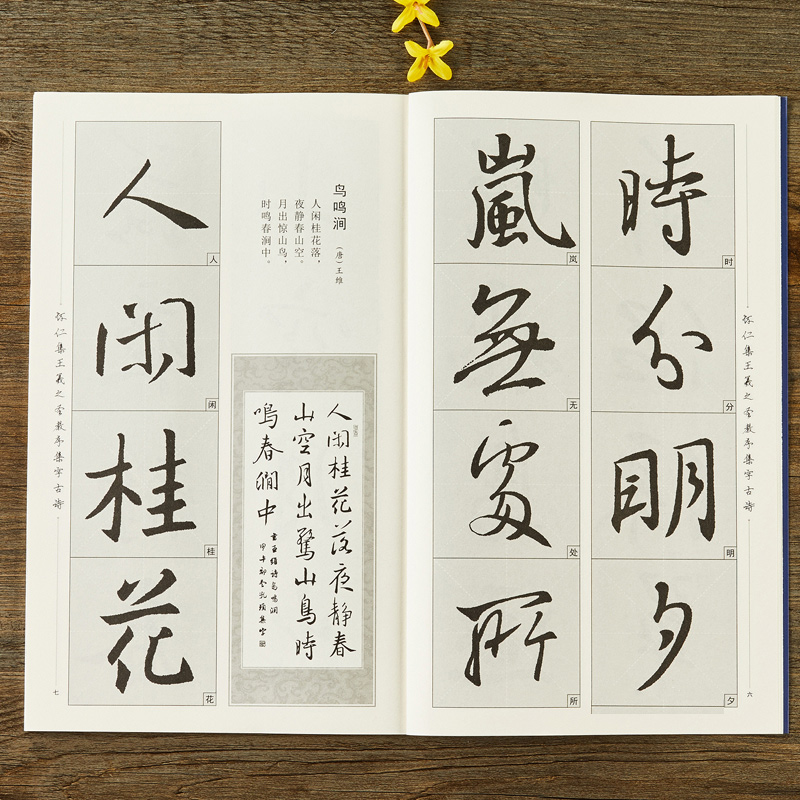 怀仁集王羲之圣教序集字古诗
六
時 时
分 分
明 明
夕 夕
嵐 岚
無 无
處 处
所 所
鸟鸣涧
（唐）王维
人闲桂花落，
夜静春山空。
月出惊山鸟，
时鸣春涧中。
人闲桂花落夜静春
山空月出驚山鳥時
鳴春澗中
書王維诗鳥鳴澗
人 人
闲 闲
桂 桂
花 花
怀仁集王羲之圣教序集字古诗
七